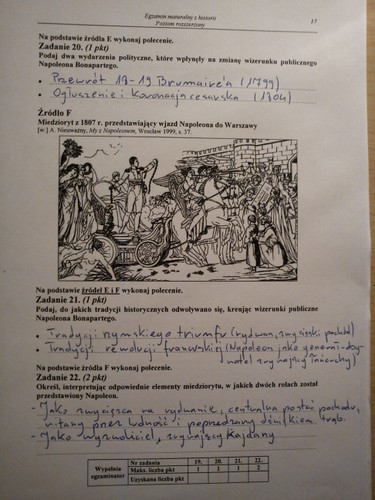 Egzamin maturalny z historii
Poziom rozszerzony
17
Na podstawie źródła E wykonaj polecenie.
Zadanie 20. (1 pkt)
Podaj dwa wydarzenia polityczne, które wpłynęły na zmianę wizerunku publicznego
Napoleona Bonapartego.
• Przewrót 18-19 Brumaire'a (1799)
• Ogłoszenie i Koronacja cesarska (1804)
Źródło F
Miedzioryt z 1807 r. przedstawiający wjazd Napoleona do Warszawy
[w:] A. Nieuważny, My z Napoleonem, Wrocław 1999, s. 37.
Na podstawie źródeł E i F wykonaj polecenie.
Zadanie 21. (1 pkt)
Podaj, do jakich tradycji historycznych odwoływano się, kreując wizerunki publiczne
Napoleona Bonapartego.
• Tradycji rzymskiego triumfu (rydwan, zwycięski pochód)
• Tradycji rewolucji francuskiej (Napoleon jako
zrywający łańcuchy)
Na podstawie źródła F wykonaj polecenie.
Zadanie 22. (2 pkt)
Określ, interpretując odpowiednie elementy miedziorytu, w jakich dwóch rolach został
przedstawiony Napoleon.
- Jako zwycięzca na rydwanie, centralna postać pochodu,
witany przez ludność i poprzedzany dźwiękiem trąb.
- Jako wyzwoliciel, zrywający Kajdany.
Wypełnia
egzaminator
Nr zadania 19. 20. 21. 22.
Maks. liczba pkt 1 1 1 2
Uzyskana liczba pkt